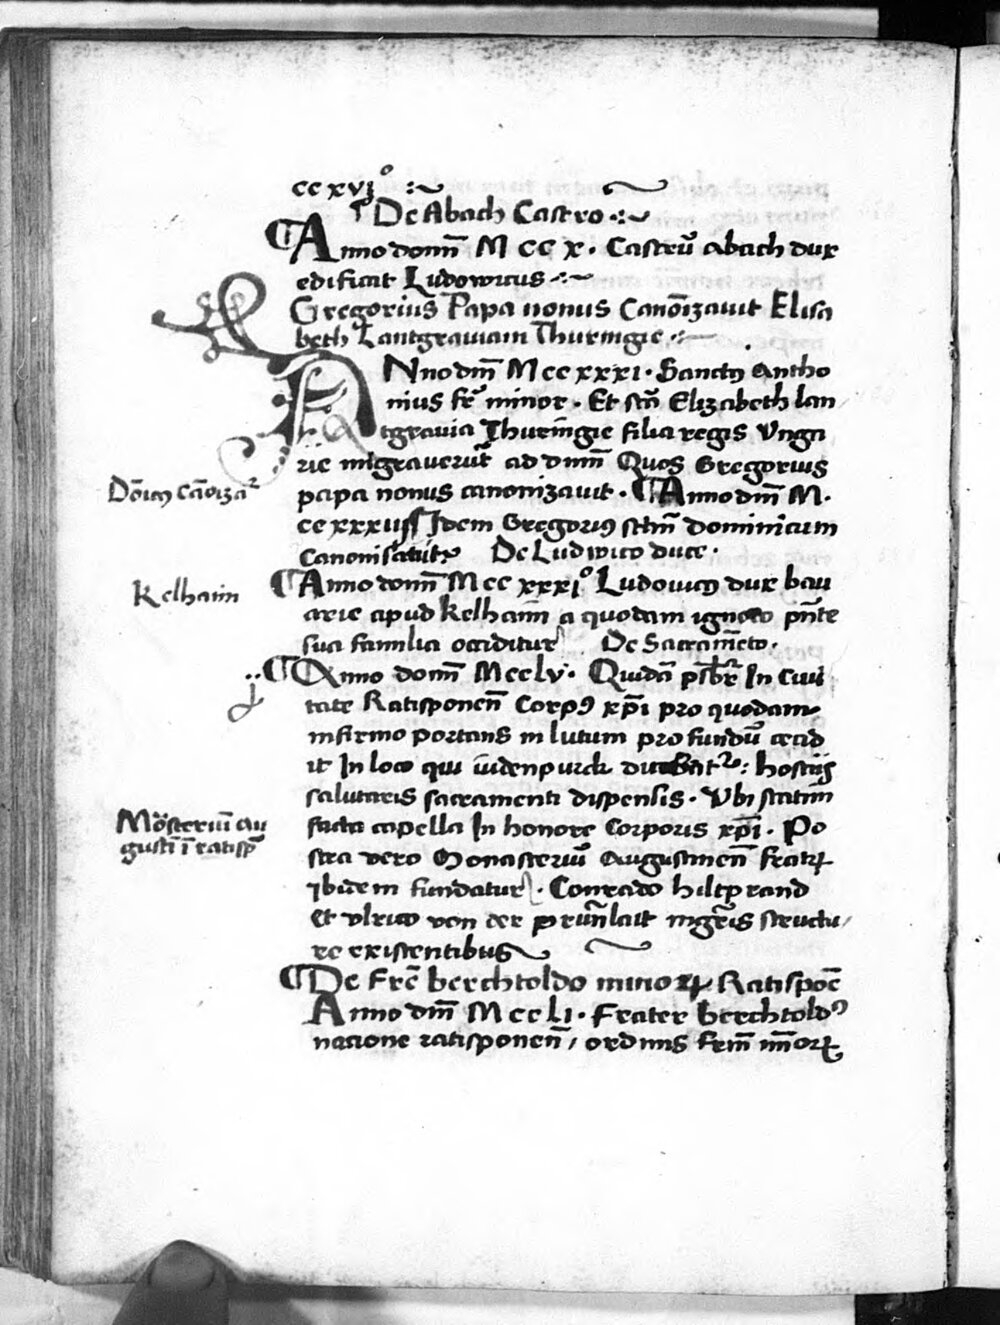 ccxvjº :~
De Abach Castro .:~
¶ Anno domī M CC X . Castrū abach dux
edificat Ludowicus .:~
Gregorius Papa nonus Canōizauit Elisa
beth Lantgrauiam Thuringie .:~
ANno dm̄ M cc xxxi . Sanctꝯ Antho
nius fr̄ minor . Et scā Elizabeth lan
tgrauia Thurīngie filia regis Vnga
rie migrauerūt ad dm̄m Quos Gregorius
papa nonus canonizauit . ¶ Anno dm̄ M .
Dōicꝯ cāoizaʳ
cc xxxiiij Idem Gregoriꝯ sctm̄ dominicum
Canonisauit De Ludwico duce .
¶ Anno domī M cc xxxjº Ludouicꝯ dux bau
Kelhaim
arie apud Kelhaim̄ a quodam ignoto pn̄te
sua familia occiditur De Sacram̄eto .
¶ Anno domī M cc lv . Quidā psbr̄ In Ciui
tate Ratisponen̄ Corpꝯ xp̄i pro quodam
infirmo portans in lutum profundū cecid
it In loco qui dicebatʳ : hostijs
salutaris sacramenti dispensis . Vbi statim̄
Mōsteriū au
gustī ī ratisp̄
facta capella In honore Corporis xp̄i . Po
stea vero Monasteriū Augustinen̄ fratrꝝ
ibidem fundatur . Conrado hiltprand
et vlrico von der prun̄lait ingr̄is structu
re existentibus
¶ De Fr̄e berchtoldo minoꝝ Ratispon̄
Anno dm̄ M cc Li . Frater berchtoldꝯ
nacione ratisponen̄ / ordinis frm̄ mīorꝝ